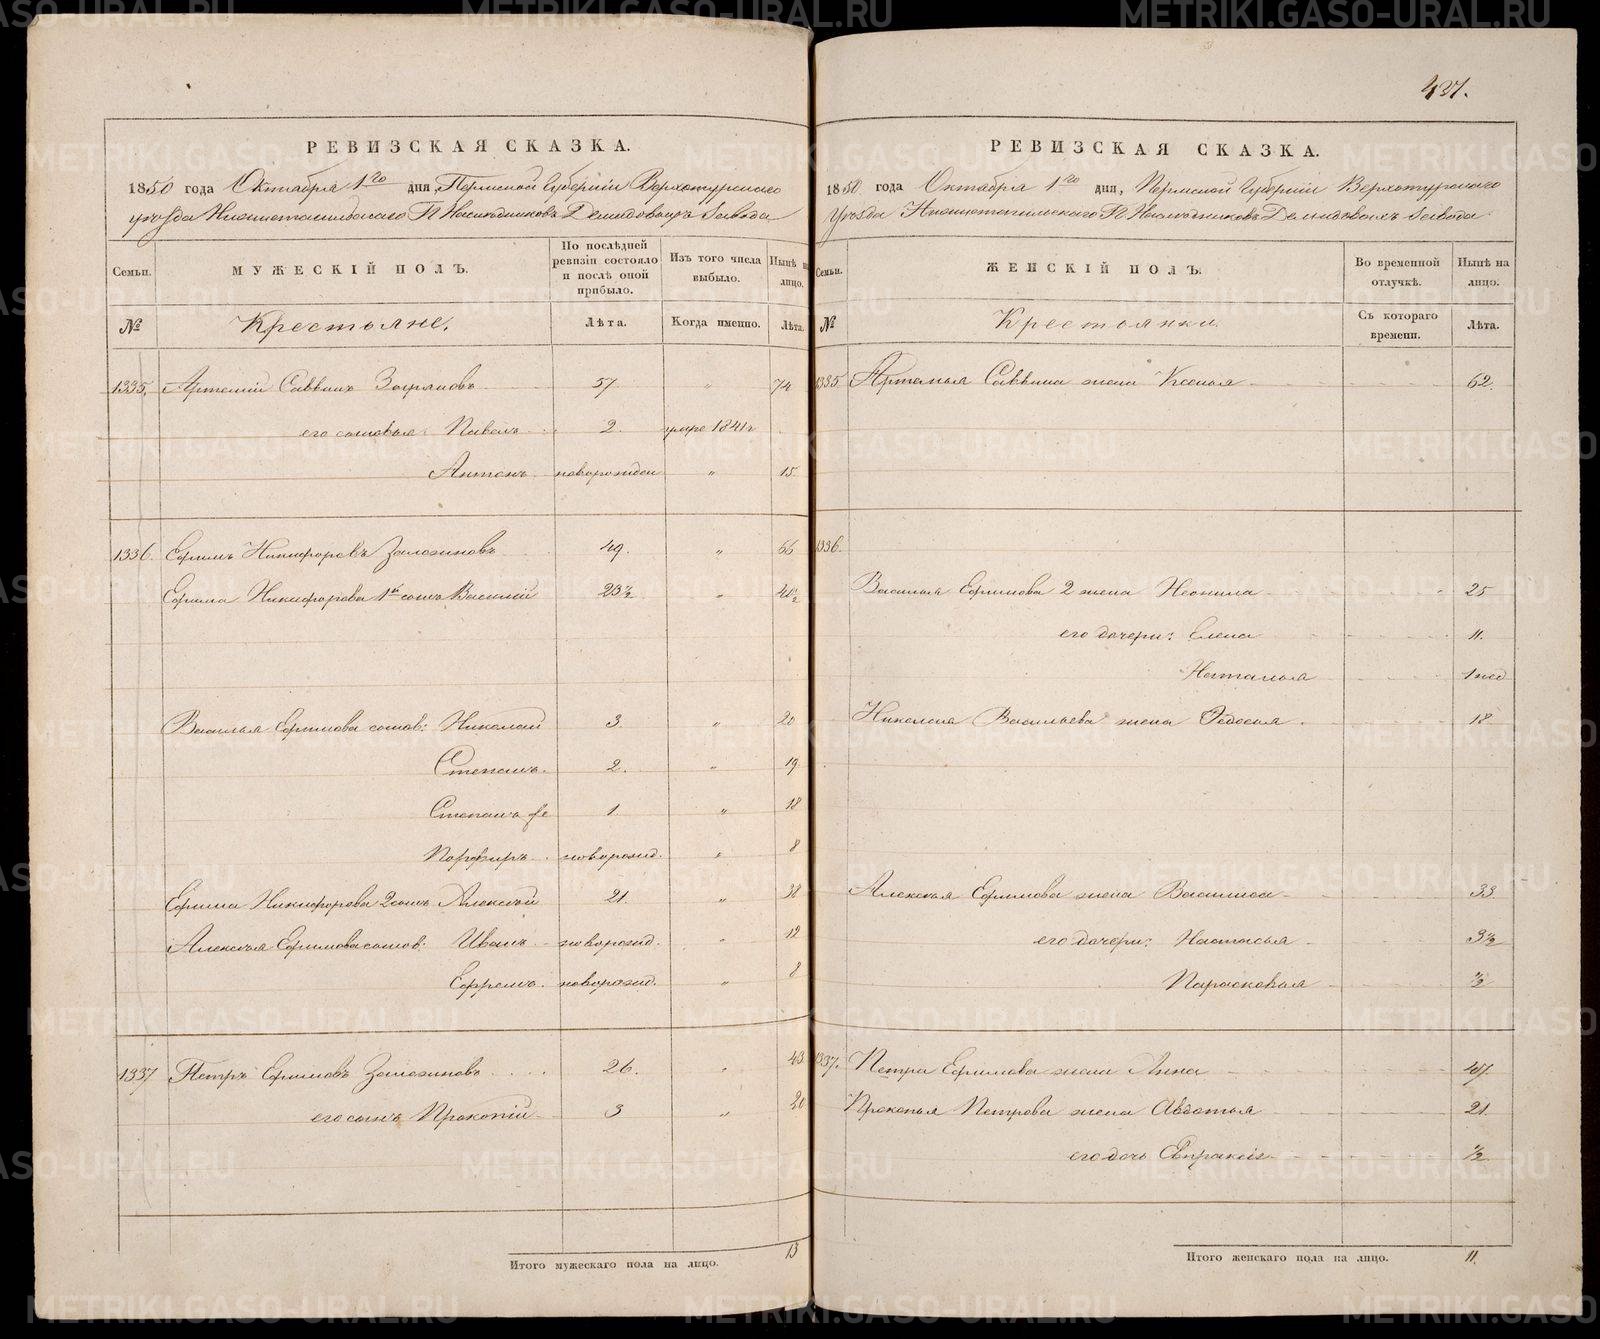 437.
РЕВИЗСКАЯ СКАЗКА.
1850 года Октября 1го дня, Пермской Губернии Верхотурскаго
уезда Нижнетагильскаго Гг Наследниковъ Демидовыхъ Завода
Семьи. МУЖЕСКІЙ ПОЛЪ. По послѣдней ревизіи состояло и послѣ оной прибыло. Изъ того числа выбыло. Нынѣ на лицо.
№ Крестьяне. Лѣта. Когда именно. Лѣта.
1335. Артемій Саввинъ 57. " 74
его сыновья: Павелъ 2. умре 1841г
Антонъ новорожден " 15
1336. Ефимъ Никифоровъ 49. " 66
Ефима Никифорова 1й сынъ Василій 23½ " 40½
Василья Ефимова сынов: Николай 3 " 20
Степанъ. 2. " 19
Степанъ же 1. " 18
Порфиръ новорожд. " 8
Ефима Никифорова 2 сынъ Алексѣй 21. " 38
Алексѣя Ефимова сынов: Иванъ новорожд. " 12
Ефремъ. новорожд. " 8
1337 Петръ Ефимовъ 26. " 43
его сынъ Прокопій 3 " 20
Итого мужескаго пола на лицо. 13
РЕВИЗСКАЯ СКАЗКА.
1850 года Октября 1го дня, Пермской Губерніи Верхотурскаго
Уезда Нижнетагильскаго Гг Наследниковъ Демидовыхъ Завода
Семьи. ЖЕНСКІЙ ПОЛЪ. Во временной отлучкѣ. Нынѣ на лицо.
№ Крестьянки. Съ котораго времени. Лѣта.
1335 Артемья Саввина жена Ксенья 62.
1336.
Василья Ефимова 2 жена Неонила 25
его дочери: Елена 11.
Наталья 1 нед
Николая Васильева жена Федосья 18
Алексѣя Ефимова жена Василиса 33
его дочери: Настасья 3½
Парасковья ½
1337. Петра Ефимова жена Анна 47.
Прокопья Петрова жена Авдотья 21.
его дочь Евпраксія ½
Итого женскаго пола на лицо. 11.
METRIKI.GASO-URAL.RU